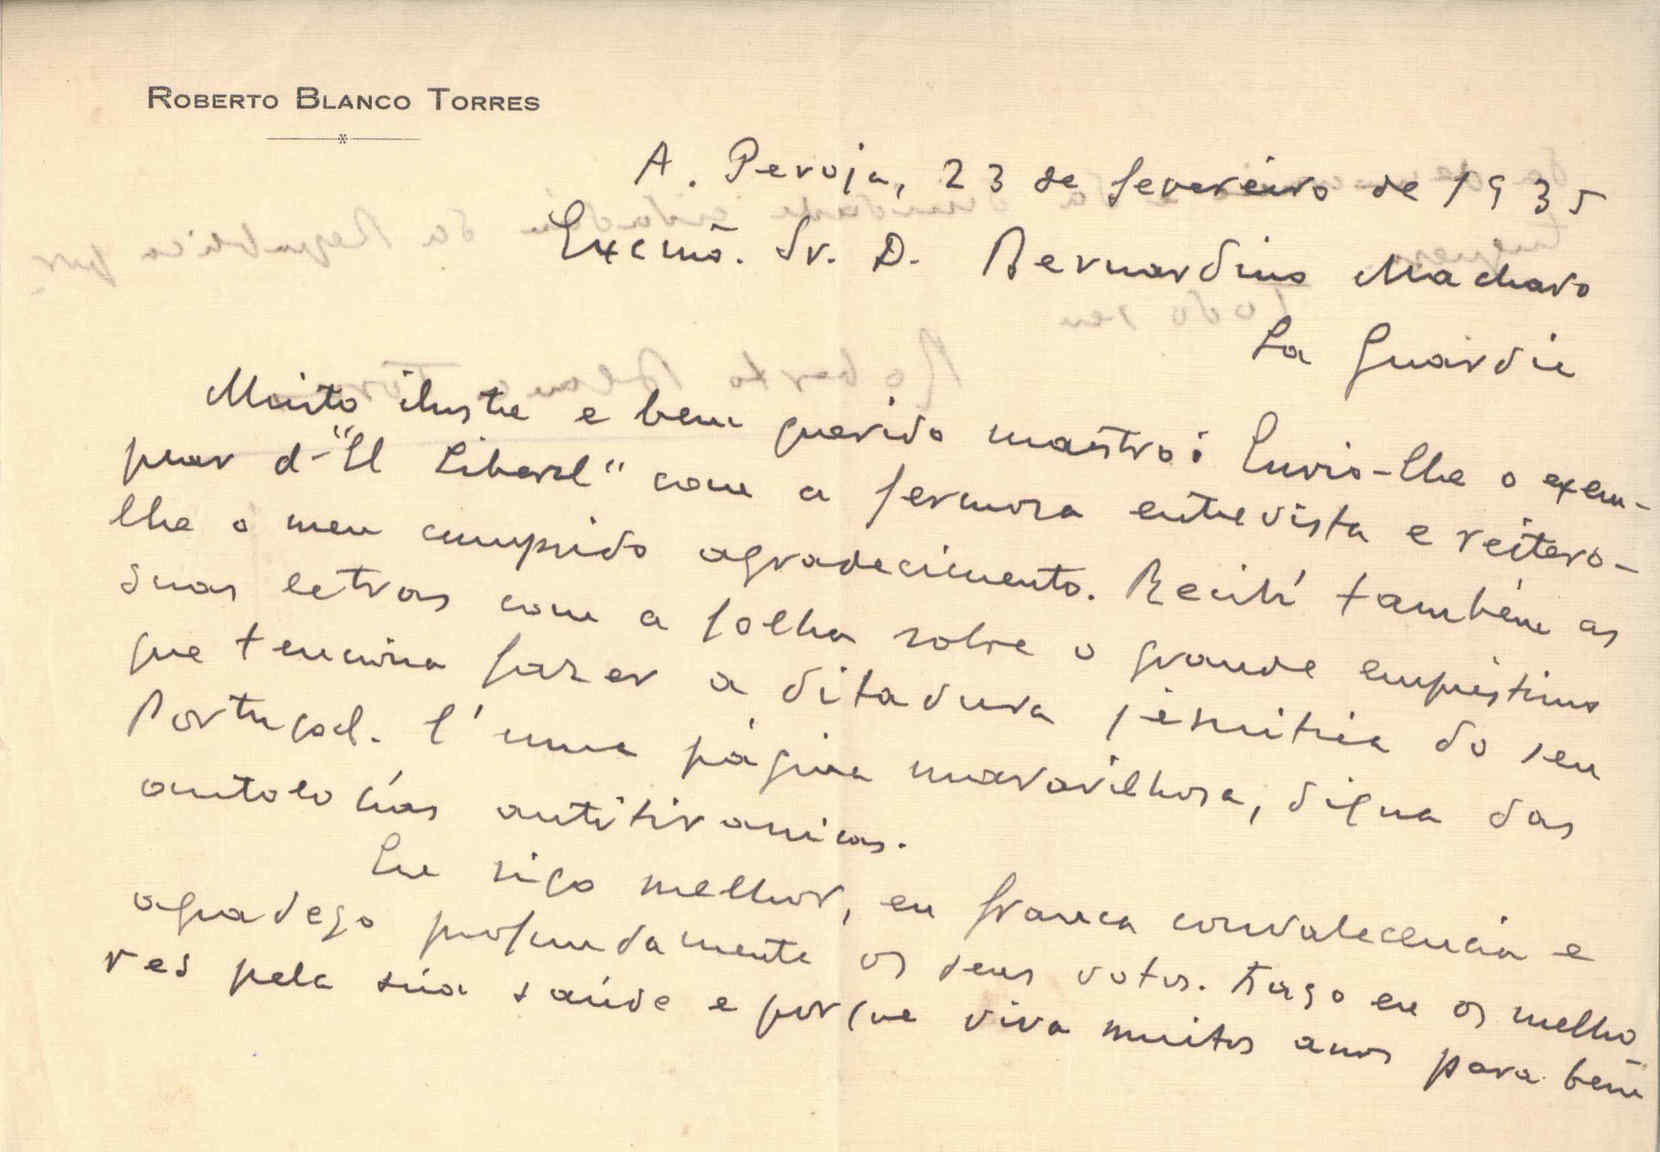 ROBERTO BLANCO TORRES
A. Peroja, 23 de fevereiro de 1935
Excmõ. Sr. D. Bernardino Machado
La Guardia
Muito ilustre e bem querido maestro: Envio-lhe o exem-
plar d-"El Liberal" com a fermosa entrevista e reitero-
lhe o meu cumprido agradecimento. Recibí também as
suas letras com a folha sobre o grande empréstimo
que tenciona fazer a ditadura jesuítica do seu
Portugal. É uma página maravilhosa, digna das
antoloxías antitiranicas.
Eu sigo melhor, en franca convalecencia e
agradezo profundamente os seus votos. Fago eu os melho-
res pela súa saúde e porque viva muitos anos para bem